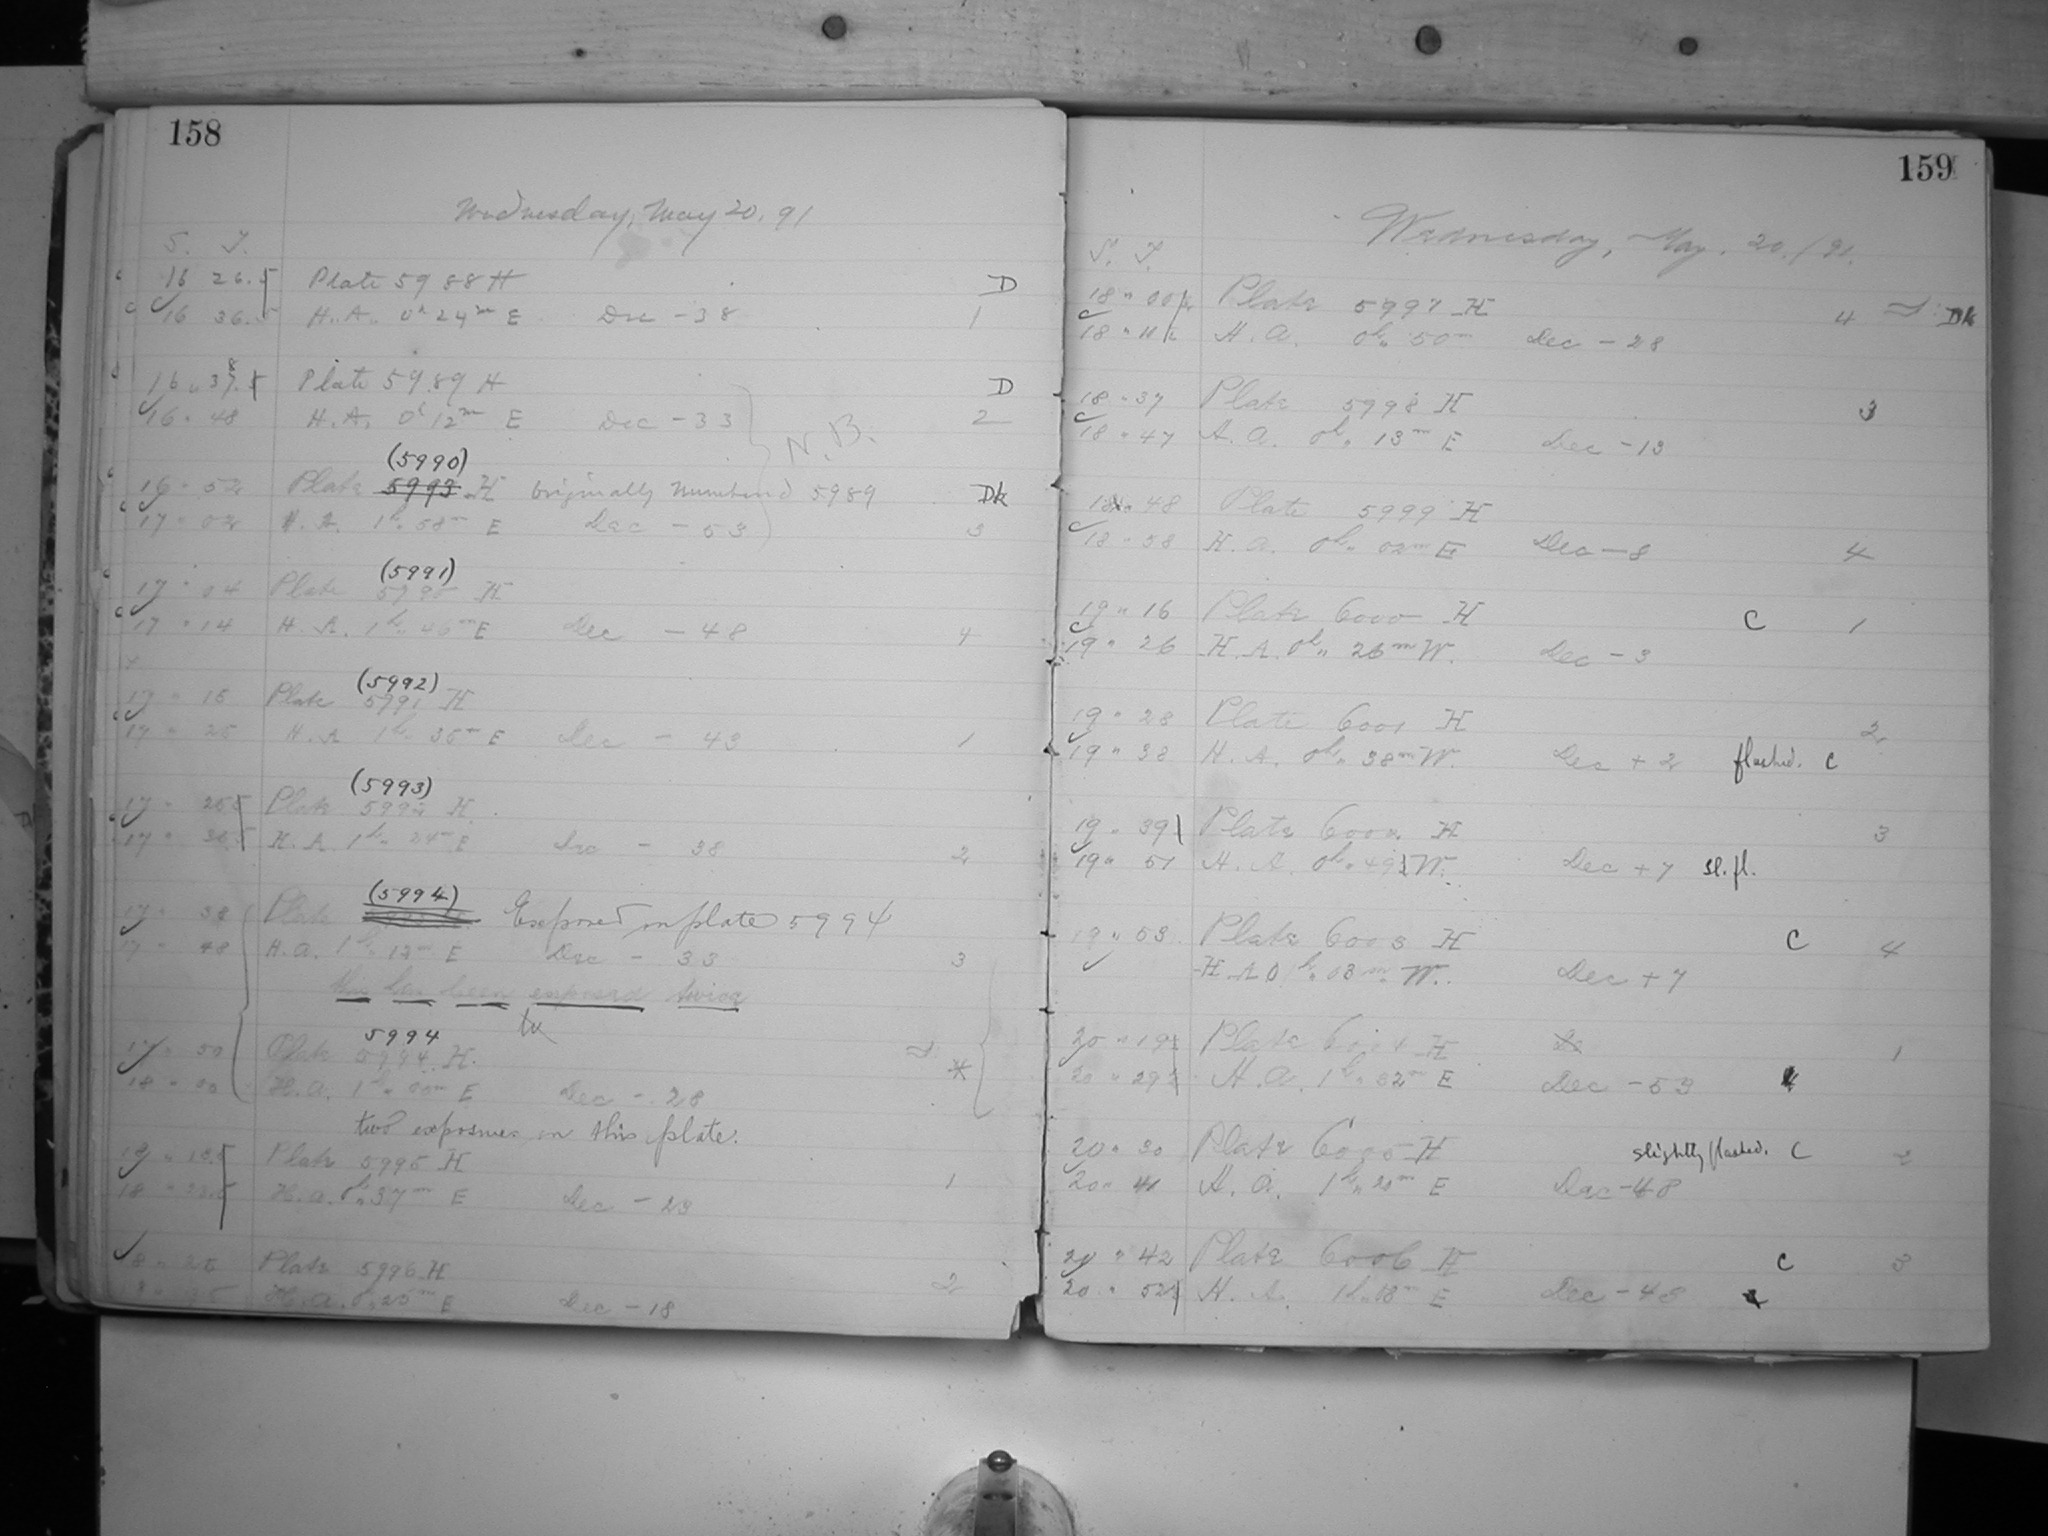 158
Wednesday, May 20, 91
S. T.
16 26.5 Plate 5988 H D
16 36.5 H.A. 0h 24m E Dec -38 1
16 " 37.5 8 Plate 5989 H D
16 " 48 H.A. 0h 12m E Dec -33 2
N.B.
(5990)
16 " 52 Plate 5993 H Originally numbered 5989 Dk
17 " 02 H.A. 1h " 58m E Dec -53 3
(5991)
17 " 04 Plate 5990 H
17 " 14 H.A. 1h " 46m E Dec -48 4
(5992)
17 " 15 Plate 5991 H
17 " 25 H.A. 1h " 35m E Dec - 43 1
(5993)
17 " 26.5 Plate 5992 H
17 " 36.5 H.A. 1h " 24m E Dec - 38 2
(5994)
17 " 38 Plate Exposed on plate 5994
17 " 48 H.A. 1h " 12m E Dec - 33 3
this has been exposed twice
5994
17 " 50 Plate 5994 H.
18 " 00 H.A. 1h " 00m E Dec - 28
two exposures on this plate.
Plate 5995 H 1
H.A. 0h " 37m E Dec - 23
18 " 25 Plate 5996 H
H.A. 0h " 25m E Dec - 18 2
159
Wednesday, May. 20./91.
S. T.
18 " 00 Plate 5997 H 4 Dk
18 " 11 H.A. 0h " 50m Dec - 28
18 " 37 Plate 5998 H 3
18 " 47 H.A. 0h " 13m E Dec - 13
18 " 48 Plate 5999 H
18 " 58 H.A. 0h " 02m E Dec - 8 4
19 " 16 Plate 6000 H C 1
19 " 26 H.A. 0h " 26m W. Dec - 3
19 " 28 Plate 6001 H 2
19 " 38 H.A. 0h " 38m W. Dec + 2 flashed. C
19 " 39 Plate 6002 H 3
19 " 51 H.A. 0h " 49 W. Dec + 7 sl. fl.
19 " 53 Plate 6003 H C 4
H.A. 0 1h " 03m W. Dec + 7
20 " 19 Plate 6004 H 1
20 " 29 H.A. 1h " 32m E Dec - 53
20 " 30 Plate 6005 H slightly flashed. C 2
20 " 41 H.A. 1h " 20m E Dec - 48
20 " 42 Plate 6006 H C 3
20 " 52 H.A. 1h " 18m E Dec - 48